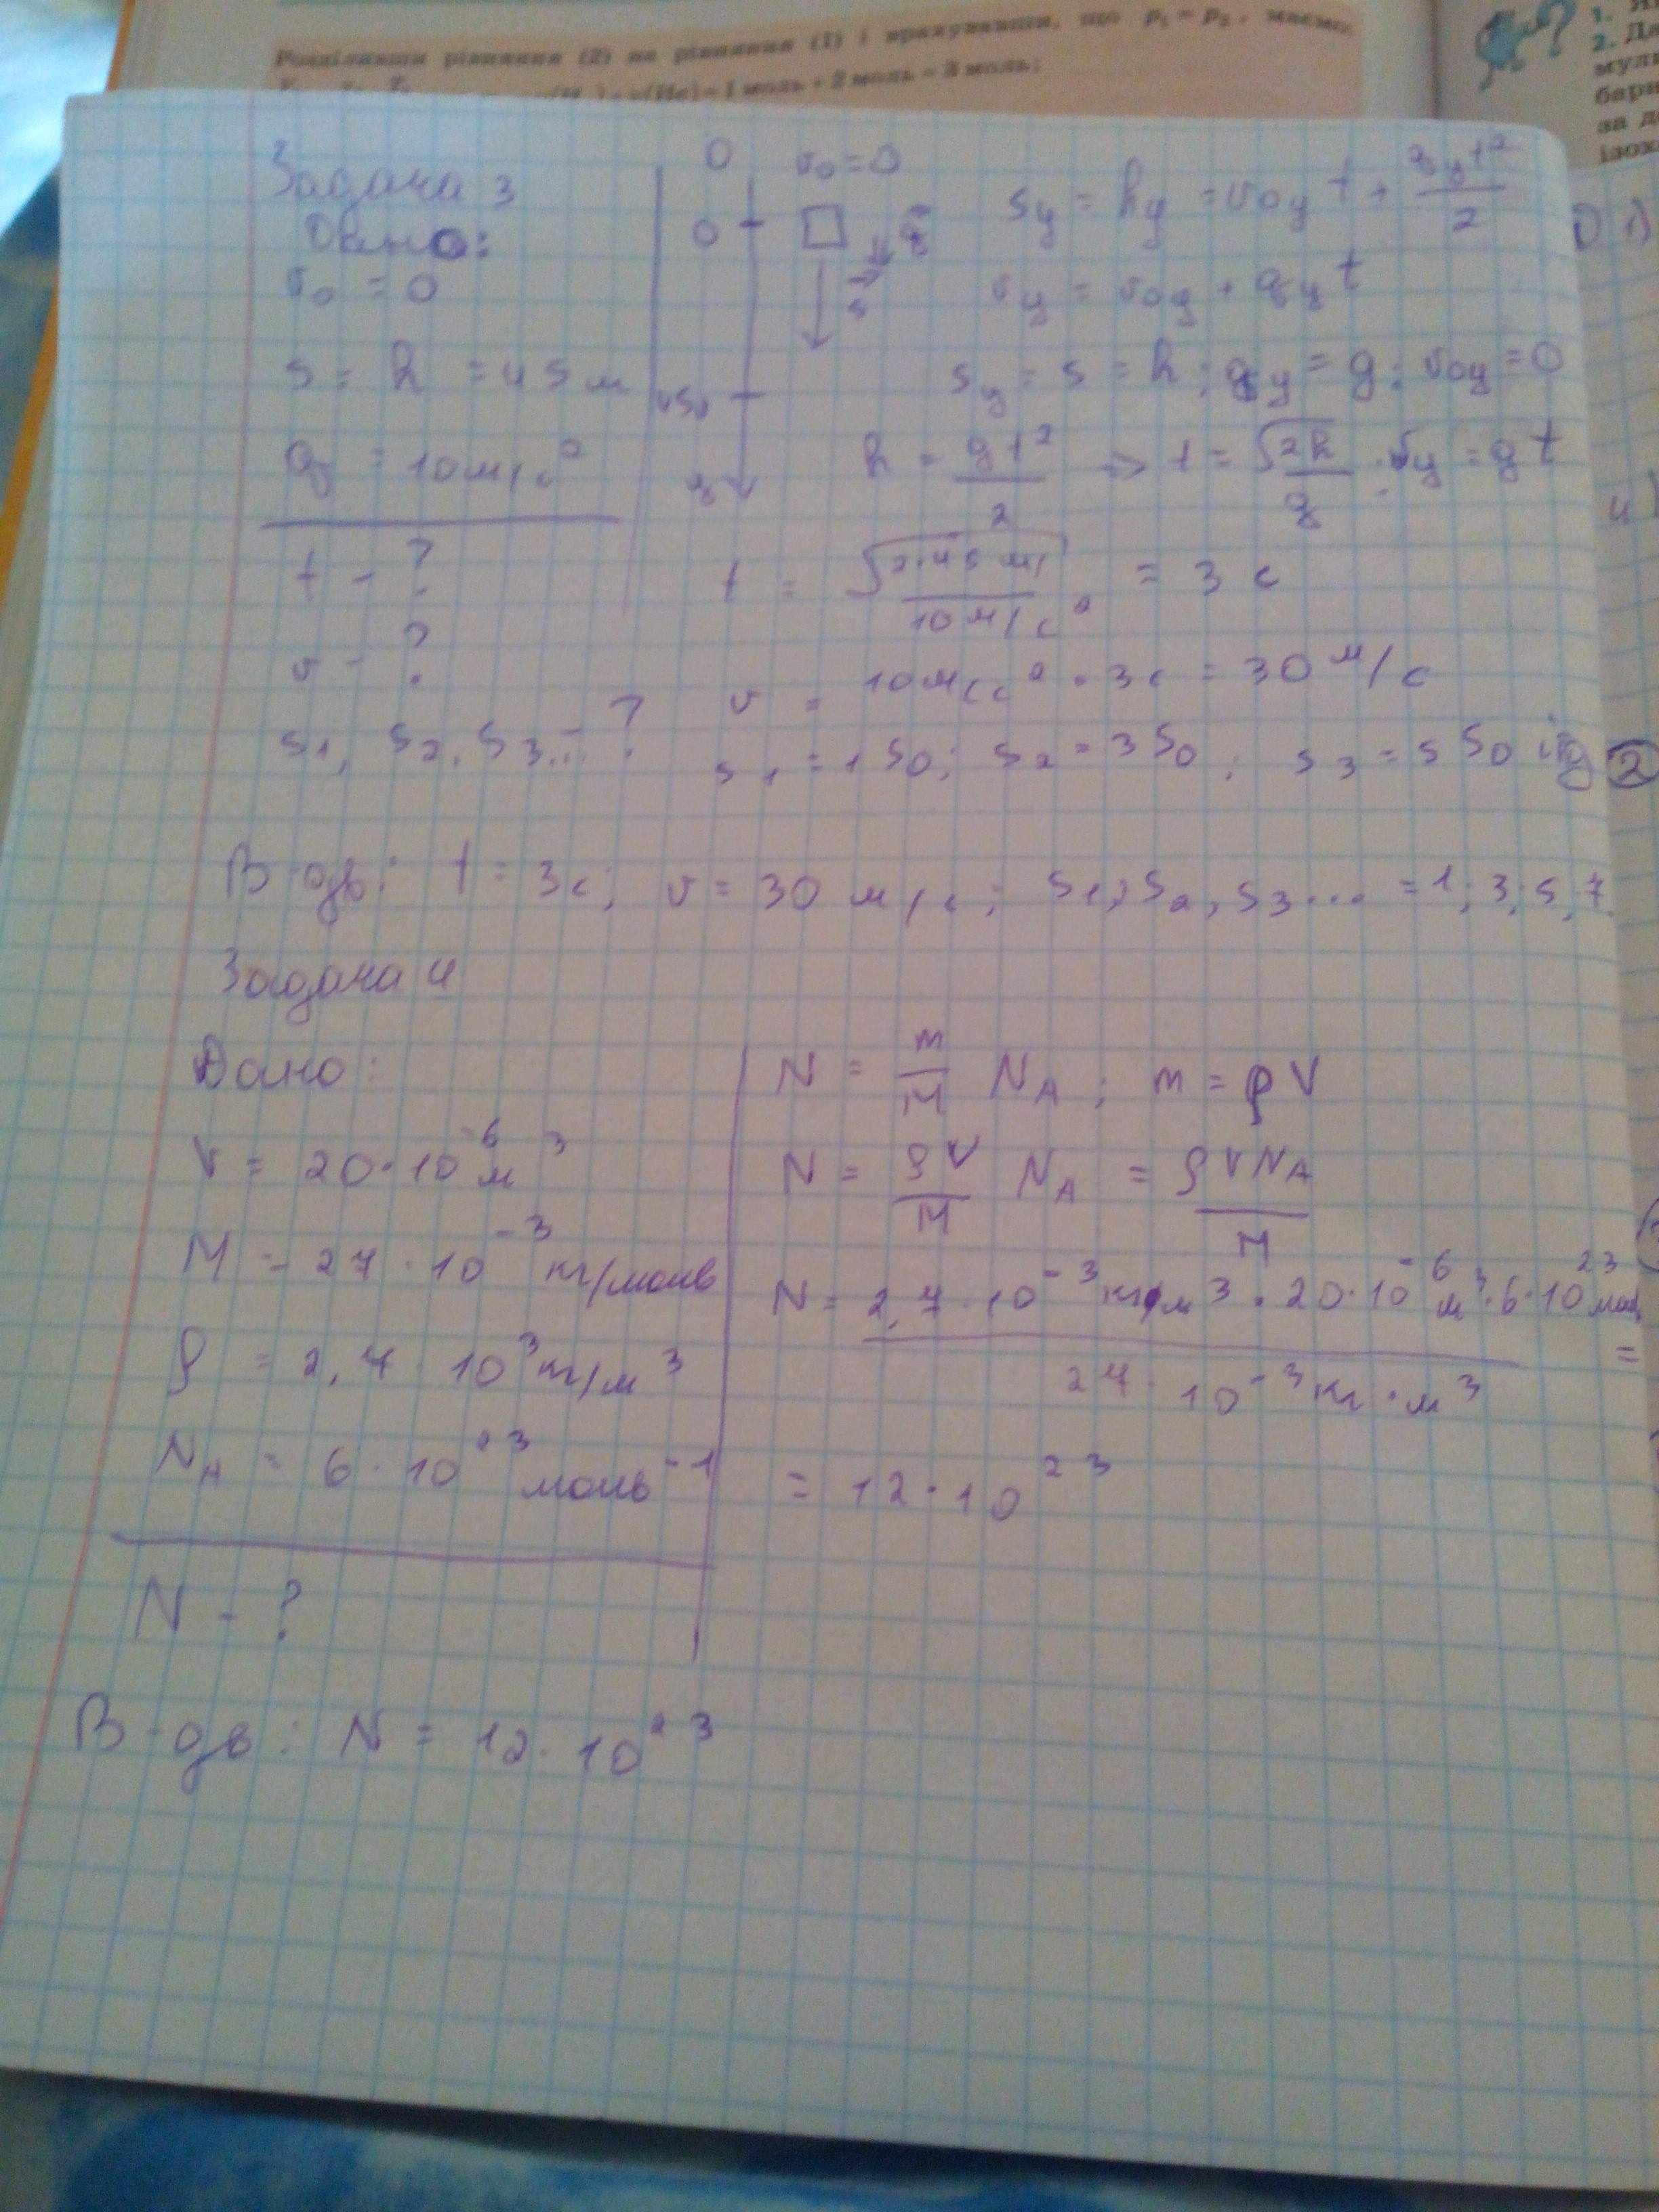 Розділивши рівняння (2) на рівняння (1) і врахувавши, що p₁ = p₂, маємо:
ν(Не) = 1 моль + 2 моль = 3 моль;
1.
2. Да
муль
бари
за д
ізох
Задача 3
Дано:
v₀ = 0
s = h = 45 м
g = 10 м/с²
t - ?
v - ?
s₁, s₂, s₃... - ?
0 v₀ = 0
0
s
45
y
s_y = h_y = v₀y t + g_y t² / 2
v_y = v₀y + g_y t
s_y = s = h; g_y = g; v₀y = 0
h = gt² / 2 => t = √2h / g; v_y = gt
t = √2·45 м / 10 м/с² = 3 с
v = 10 м/с² · 3с = 30 м/с
s₁ = 1 s₀; s₂ = 3 s₀; s₃ = 5 s₀ і тд
В-дь: t = 3с; v = 30 м/с; s₁; s₂, s₃... = 1; 3; 5, 7.
Задача 4
Дано:
V = 20·10⁻⁶ м³
M = 27·10⁻³ кг/моль
ρ = 2,7·10³ кг/м³
N_A = 6·10²³ моль⁻¹
N - ?
N = m / M N_A; m = ρV
N = ρV / M N_A = ρVN_A / M
N = 2,7·10⁻³ кг/м³ · 20·10⁻⁶ м³ · 6·10²³ мол / 27·10⁻³ кг·м³ =
= 12·10²³
В-дь: N = 12·10²³
1)
4)
2